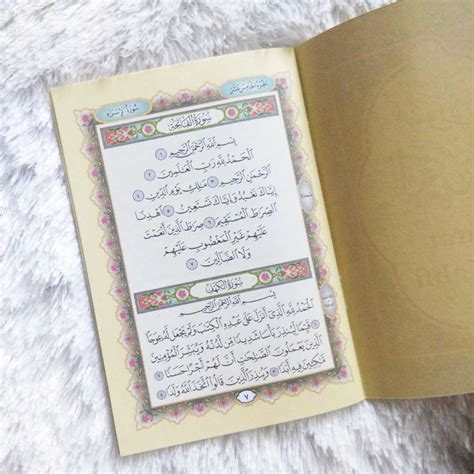 سُورَةُ الإِسْرَاءِ
سُورَةُ الْفَاتِحَةِ
بِسْمِ اللَّهِ الرَّحْمَٰنِ الرَّحِيمِ ١
الْحَمْدُ لِلَّهِ رَبِّ الْعَالَمِينَ ٢
الرَّحْمَٰنِ الرَّحِيمِ ٣ مَالِكِ يَوْمِ الدِّينِ ٤
إِيَّاكَ نَعْبُدُ وَإِيَّاكَ نَسْتَعِينُ ٥ اهْدِنَا
الصِّرَاطَ الْمُسْتَقِيمَ ٦ صِرَاطَ الَّذِينَ أَنْعَمْتَ
عَلَيْهِمْ غَيْرِ الْمَغْضُوبِ عَلَيْهِمْ
وَلَا الضَّالِّينَ ٧
سُورَةُ الْكَهْفِ
بِسْمِ اللَّهِ الرَّحْمَٰنِ الرَّحِيمِ
الْحَمْدُ لِلَّهِ الَّذِي أَنْزَلَ عَلَىٰ عَبْدِهِ الْكِتَابَ وَلَمْ يَجْعَلْ لَهُ عِوَجًا
١ قَيِّمًا لِيُنْذِرَ بَأْسًا شَدِيدًا مِنْ لَدُنْهُ وَيُبَشِّرَ الْمُؤْمِنِينَ
الَّذِينَ يَعْمَلُونَ الصَّالِحَاتِ أَنَّ لَهُمْ أَجْرًا حَسَنًا ٢
مَاكِثِينَ فِيهِ أَبَدًا ٣ وَيُنْذِرَ الَّذِينَ قَالُوا اتَّخَذَ اللَّهُ وَلَدًا ٤
٧